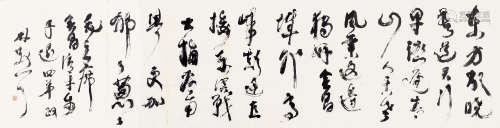 东方欲晓
莫道君行
早踏遍青
山人未老
风景这边
独好会昌
城外高
峰颠连直
接东溟战
士指看南
粤更加
郁郁葱葱
毛主席
会昌清平乐